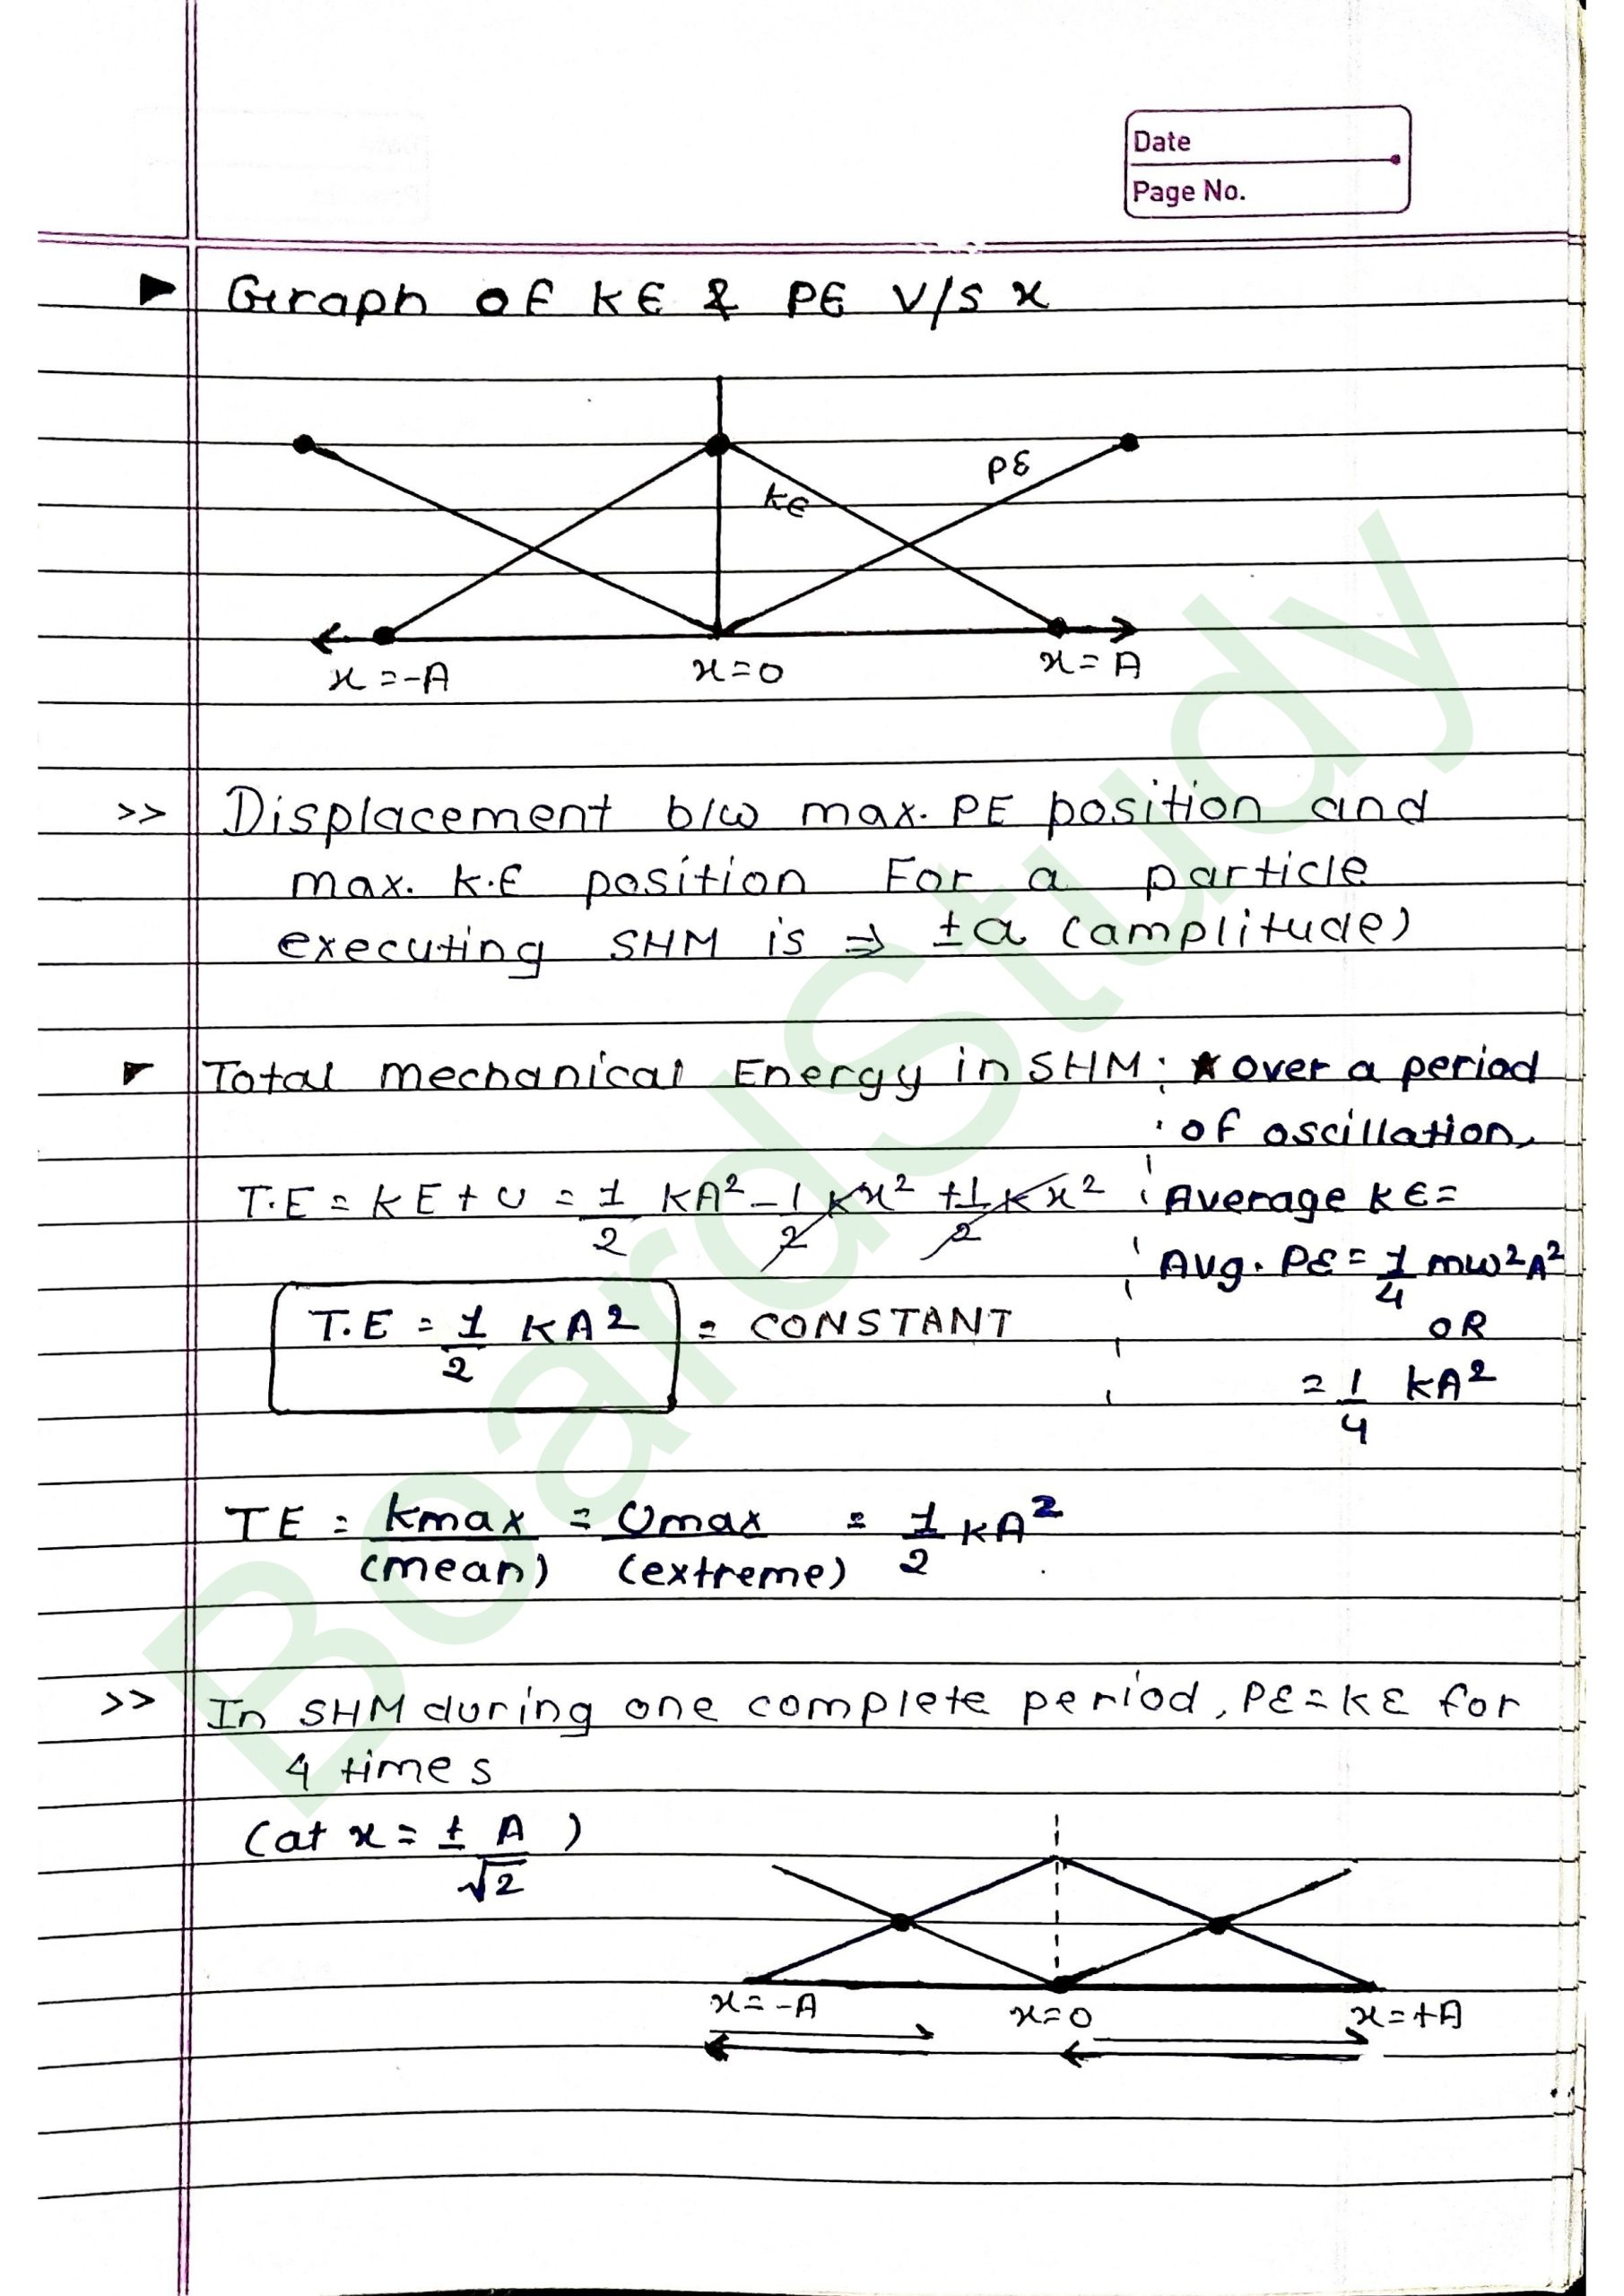 Date
Page No.
Graph of KE & PE v/s x
PE
KE
x=-A
x=0
x=A
>> Displacement b/w max. PE position and
max. K.E position For a particle
executing SHM is ⇒ ±a (amplitude)
Total mechanical Energy in SHM:
T.E = KE + U = 1/2 KA² - 1/2 Kx² + 1/2 Kx²
T.E = 1/2 KA² = CONSTANT
★ over a period
of oscillation,
Average KE =
Avg. PE = 1/4 mω²A²
OR
= 1/4 KA²
TE = Kmax (mean) = Umax (extreme) = 1/2 KA²
>> In SHM during one complete period, PE=KE for
4 times
(at x = ± A/√2)
x=-A
x=0
x=+A
BoardStudy